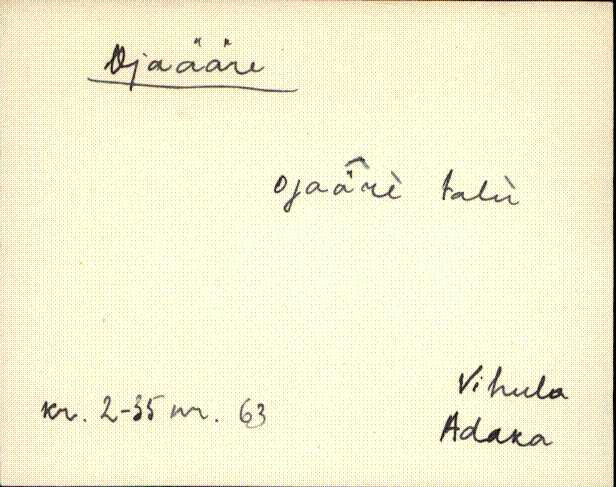 Ojaääre
ojaä̂rè talù
kr. 2-35 nr. 63
Vihula
Adaka